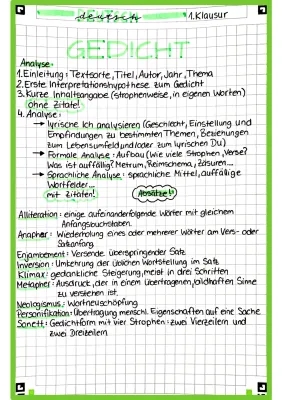 deutsch
1.Klausur
GEDICHT
Analyse:
1.Einleitung: Textsorte, Titel, Autor, Jahr, Thema
2.Erste Interpretationshypothese zum Gedicht
3.Kurze Inhaltsangabe (strophenweise, in eigenen Worten)
Ohne Zitate!
4.Analyse:
→ lyrische Ich analysieren (Geschlecht, Einstellung und
Empfindungen zu bestimmten Themen, Beziehungen
zum Lebensumfeld und/oder zum lyrischen Du)
→ Formale Analyse: Aufbau (Wie viele Strophen, Verse?
Was ist auffällig? Metrum, Reimschema, Zäsuren...
→ Sprachliche Analyse: sprachliche Mittel, auffällige
Wortfelder...
mit Zitaten! Absätze!
Alliteration: einige aufeinanderfolgende Wörter mit gleichem
Anfangsbuchstaben.
Anapher: Wiederholung eines oder mehrerer Wörter am Vers- oder
Satzanfang.
Enjambement: Versende überspringender Satz
Inversion: Umkehrung der üblichen Wortstellung im Satz
Klimax: gedankliche Steigerung, meist in drei Schritten
Metapher: Ausdruck, der in einem übertragenen, bildhaften Sinne
zu verstehen ist.
Neologismus: Wortneuschöpfung
Personifikation: Übertragung menschl. Eigenschaften auf eine Sache
Sonett: Gedichtform mit vier Strophen: zwei Vierzeilern und
zwei Dreizeilern.